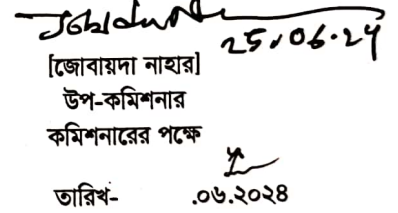 25.06.24
[জোবায়দা নাহার]
উপ-কমিশনার
কমিশনারের পক্ষে
তারিখ- .০৬.২০২৪